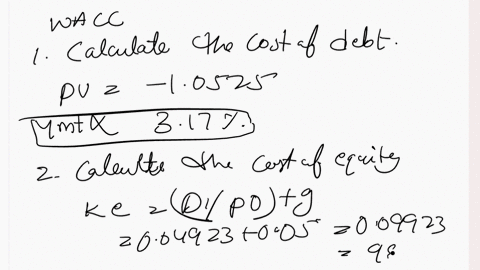 WACC
1. Calculate the cost of debt.
PV = -1.0525
3.17%
2. Calculte the cost of equity
Ke = (D1/P0)+g
=0.04923+0.05 = 0.09923
= 98